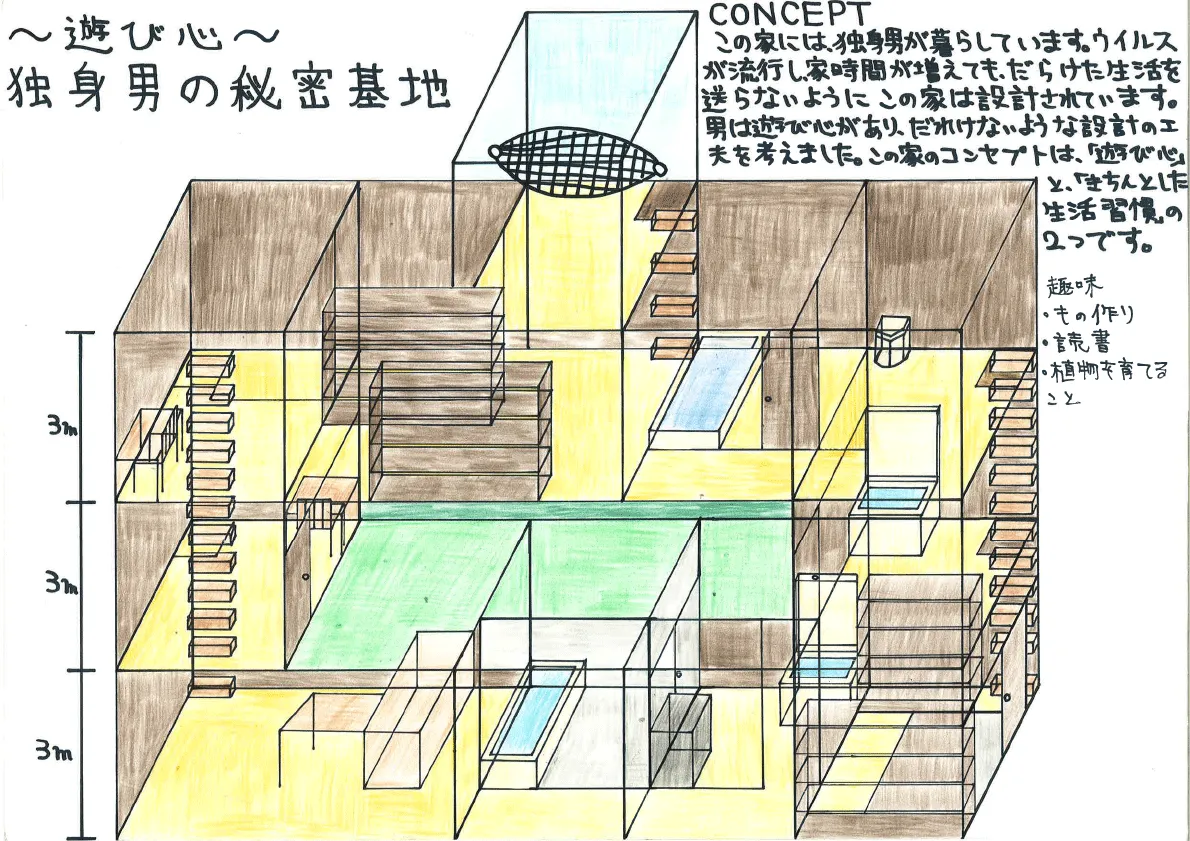 〜遊び心〜
独身男の秘密基地
CONCEPT
この家には、独身男が暮らしています。ウイルス
が流行し、家時間が増えても、だらけた生活を
送らないように この家は設計されています。
男は遊び心があり、だれけないような設計の工
夫を考えました。この家のコンセプトは、「遊び心」
と、「きちんとした
生活習慣」の
2つです。
趣味
・もの作り
・読書
・植物を育てる
こと
3m
3m
3m